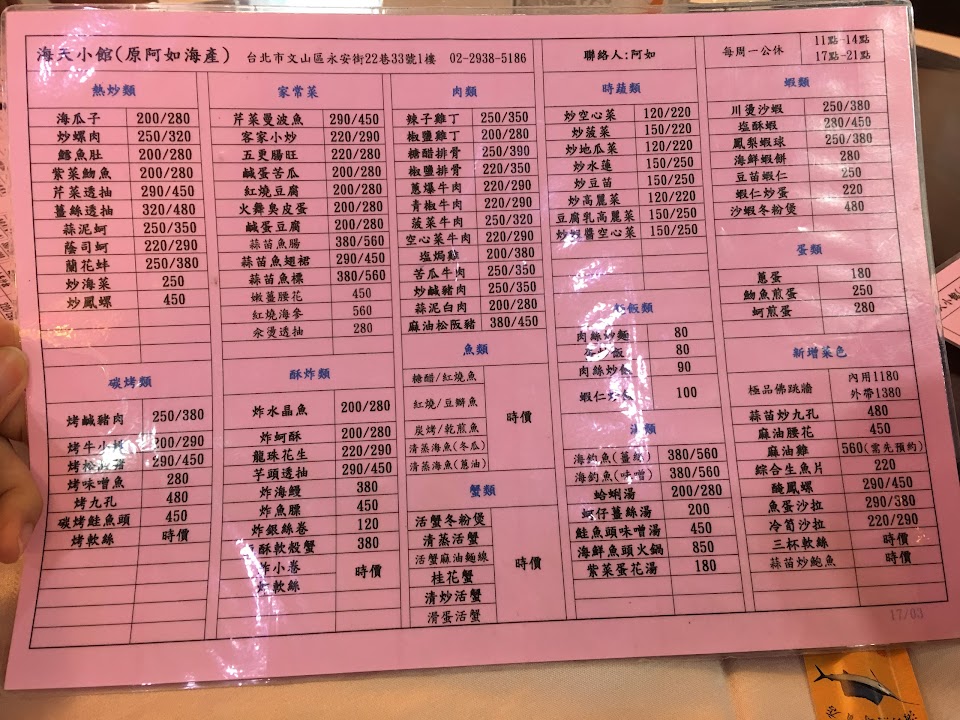 海天小館(原阿如海產) 台北市文山區永安街22巷33號1樓 02-2938-5186 聯絡人:阿如 每周一公休 11點-14點
17點-21點
熱炒類
海瓜子 200/280
炒螺肉 250/320
鱈魚肚 200/280
紫菜魩魚 200/280
芹菜透抽 290/450
薑絲透抽 320/480
蒜泥蚵 250/350
蔭司蚵 220/290
蘭花蚌 250/380
炒海菜 250
炒鳳螺 450
碳烤類
烤鹹豬肉 250/380
烤牛小排 200/290
烤松阪豬 290/450
烤味噌魚 280
烤九孔 480
碳烤鮭魚頭 450
烤軟絲 時價
家常菜
芹菜曼波魚 290/450
客家小炒 220/290
五更腸旺 220/280
鹹蛋苦瓜 200/280
紅燒豆腐 200/280
火舞臭皮蛋 200/280
鹹蛋豆腐 200/280
蒜苗魚腸 380/560
蒜苗魚翅裙 290/450
蒜苗魚標 380/560
嫩薑腰花 450
紅燒海參 560
汆燙透抽 280
酥炸類
炸水晶魚 200/280
炸蚵酥 200/280
龍珠花生 220/290
芋頭透抽 290/450
炸海鰻 380
炸魚膘 450
炸銀絲卷 120
酥軟殼蟹 380
炸小卷
軟絲
時價
肉類
辣子雞丁 250/350
椒鹽雞丁 200/280
糖醋排骨 250/390
椒鹽排骨 220/350
蔥爆牛肉 220/290
青椒牛肉 220/290
菠菜牛肉 250/320
空心菜牛肉 220/290
塩焗雞 200/380
苦瓜牛肉 250/350
炒鹹豬肉 250/350
蒜泥白肉 200/280
麻油松阪豬 380/450
魚類
糖醋/紅燒魚
紅燒/豆瓣魚
炭烤/乾煎魚
清蒸海魚(冬瓜)
清蒸海魚(蔥油)
時價
蟹類
活蟹冬粉煲
清蒸活蟹
活蟹麻油麵線
桂花蟹
清炒活蟹
滑蛋活蟹
時價
時蔬類
炒空心菜 120/220
炒菠菜 150/220
炒地瓜菜 120/220
炒水蓮 150/250
炒豆苗 150/250
炒高麗菜 120/220
豆腐乳高麗菜 150/250
炒蝦醬空心菜 150/250
飯類
肉絲炒麵 80
炒飯 80
肉絲炒飯 90
蝦仁炒飯 100
湯類
海釣魚(薑絲) 380/560
海釣魚(味噌) 380/560
蛤蜊湯 200/280
蚵仔薑絲湯 200
鮭魚頭味噌湯 450
海鮮魚頭火鍋 850
紫菜蛋花湯 180
蝦類
川燙沙蝦 250/380
塩酥蝦 280/450
鳳梨蝦球 250/380
海鮮蝦餅 280
豆苗蝦仁 250
蝦仁炒蛋 220
沙蝦冬粉煲 480
蛋類
蔥蛋 180
魩魚煎蛋 250
蚵煎蛋 280
新增菜色
極品佛跳牆 內用1180
外帶1380
蒜苗炒九孔 480
麻油腰花 450
麻油雞 560(需先預約)
綜合生魚片 220
醃鳳螺 290/450
魚蛋沙拉 290/380
冷筍沙拉 220/290
三杯軟絲 時價
蒜苗炒鮑魚 時價
17/03